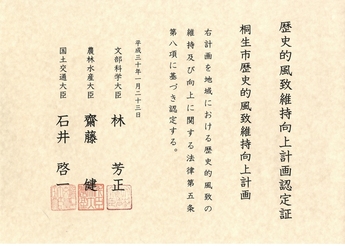 歴史的風致維持向上計画認定証
桐生市歴史的風致維持向上計画
右計画を地域における歴史的風致の
維持及び向上に関する法律第五条
第八項に基づき認定する。
平成三十年一月二十三日
文部科学大臣 林 芳正
農林水産大臣 齋藤 健
国土交通大臣 石井 啓一